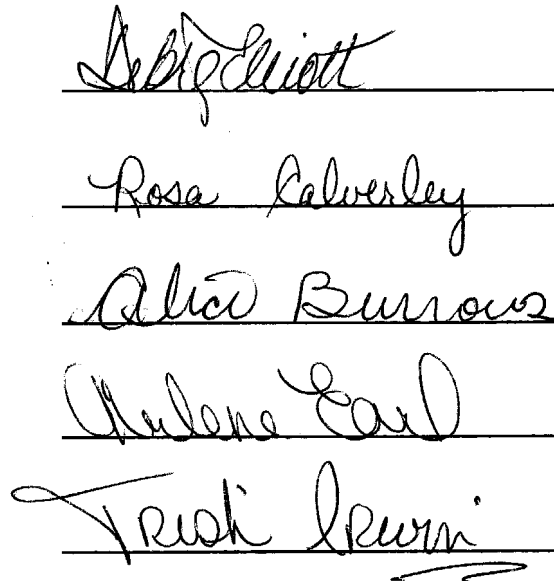 Debi Elliott
Rosa Calverley
Alice Burrows
Arlene Earl
Trish Irwin